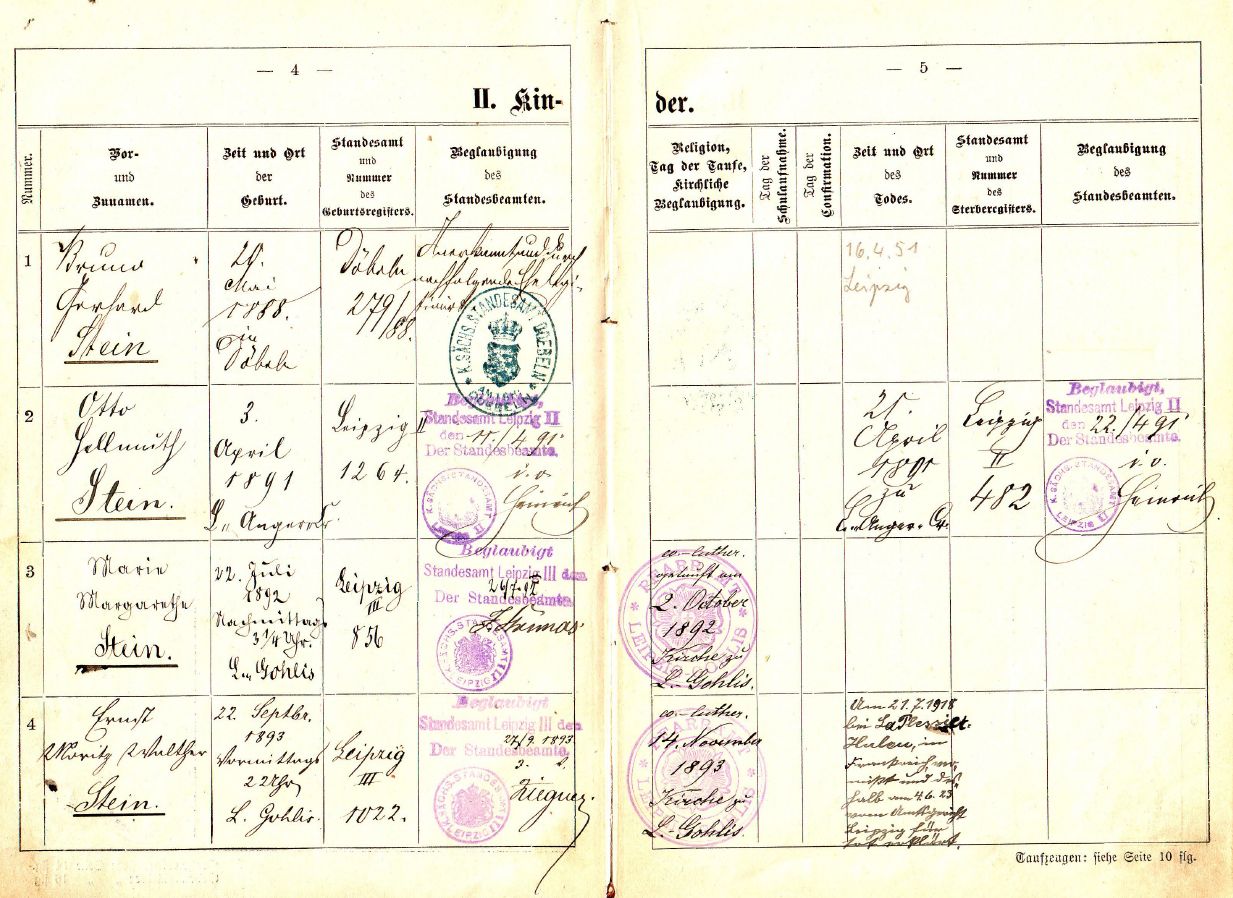 — 4 —
II. Kin-
Nummer.
Vor-
und
Zunamen.
Zeit und Ort
der
Geburt.
Standesamt
und
Nummer
des
Geburtsregisters.
Beglaubigung
des
Standesbeamten.
1
Bruno
Gerhard
Stein
20.
Mai
1888.
in
Döbeln
Döbeln
279/88.
Anerkannt und durch
nachfolgende Ehe legi-
timirt
K. SÄCHS. STANDESAMT DOEBELN
2
Otto
Hellmuth
Stein.
3.
April
1891
L.-Anger-Cr.
Leipzig II
1264.
Beglaubigt,
Standesamt Leipzig II
den 11./4 91
Der Standesbeamte.
i.v.
Heinrich
K. SÄCHS. STANDESAMT
LEIPZIG II
3
Marie
Margarethe
Stein.
22. Juli
1892
Nachmittags
3 1/4 Uhr.
L.-Gohlis
Leipzig
III
856
Beglaubigt
Standesamt Leipzig III den
26/7. 92
Der Standesbeamte.
K. SÄCHS. STANDESAMT
LEIPZIG III
4
Ernst
Moritz Walther
Stein.
22. Septbr.
1893
Vormittags
2 Uhr
L. Gohlis.
Leipzig
III
1022.
Beglaubigt
Standesamt Leipzig III den
27/9. 1893
Der Standesbeamte.
K. SÄCHS. STANDESAMT
LEIPZIG III
— 5 —
der.
Religion,
Tag der Taufe,
Kirchliche
Beglaubigung.
Tag der
Schulaufnahme.
Tag der
Confirmation.
Zeit und Ort
des
Todes.
Standesamt
und
Nummer
des
Sterberegisters.
Beglaubigung
des
Standesbeamten.
16.4.51
Leipzig
21.
April
1891
zu
L.-Anger-Cr.
Leipzig
II
482
Beglaubigt,
Standesamt Leipzig II
den 22./4 91
Der Standesbeamte.
i.v.
Heinrich
K. SÄCHS. STANDESAMT
LEIPZIG II
ev.-luther.
getauft am
2. October
1892
Kirche zu
L.-Gohlis.
PFARRAMT
LEIPZIG-GOHLIS
ev.-luther.
14. November
1893
Kirche zu
L.-Gohlis.
PFARRAMT
LEIPZIG-GOHLIS
Am 21.7.1918
bei
in
Frankreich ver-
mißt und des-
halb am 4.6.23
vom Amtsgericht
Leipzig für
tot erklärt.
Taufzeugen: siehe Seite 10 flg.